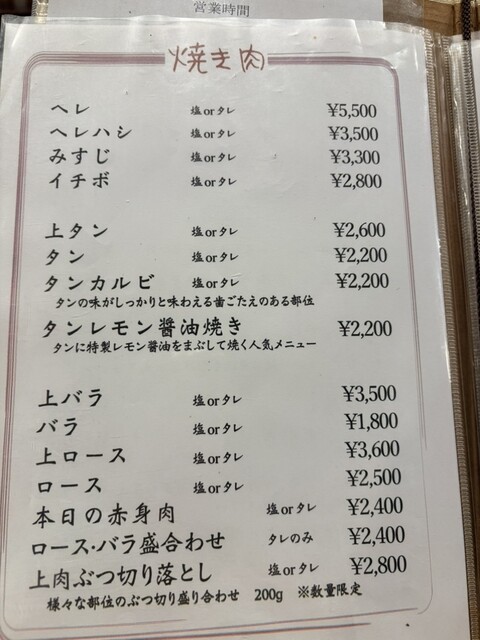 営業時間
焼き肉
ヘレ 塩 or タレ ¥5,500
ヘレハシ 塩 or タレ ¥3,500
みすじ 塩 or タレ ¥3,300
イチボ 塩 or タレ ¥2,800
上タン 塩 or タレ ¥2,600
タン 塩 or タレ ¥2,200
タンカルビ 塩 or タレ ¥2,200
タンの味がしっかりと味わえる歯ごたえのある部位
タンレモン醤油焼き ¥2,200
タンに特製レモン醤油をまぶして焼く人気メニュー
上バラ 塩 or タレ ¥3,500
バラ 塩 or タレ ¥1,800
上ロース 塩 or タレ ¥3,600
ロース 塩 or タレ ¥2,500
本日の赤身肉 塩 or タレ ¥2,400
ロース・バラ盛合わせ タレのみ ¥2,400
上肉ぶつ切り落とし 塩 or タレ ¥2,800
様々な部位のぶつ切り盛り合わせ 200g ※数量限定